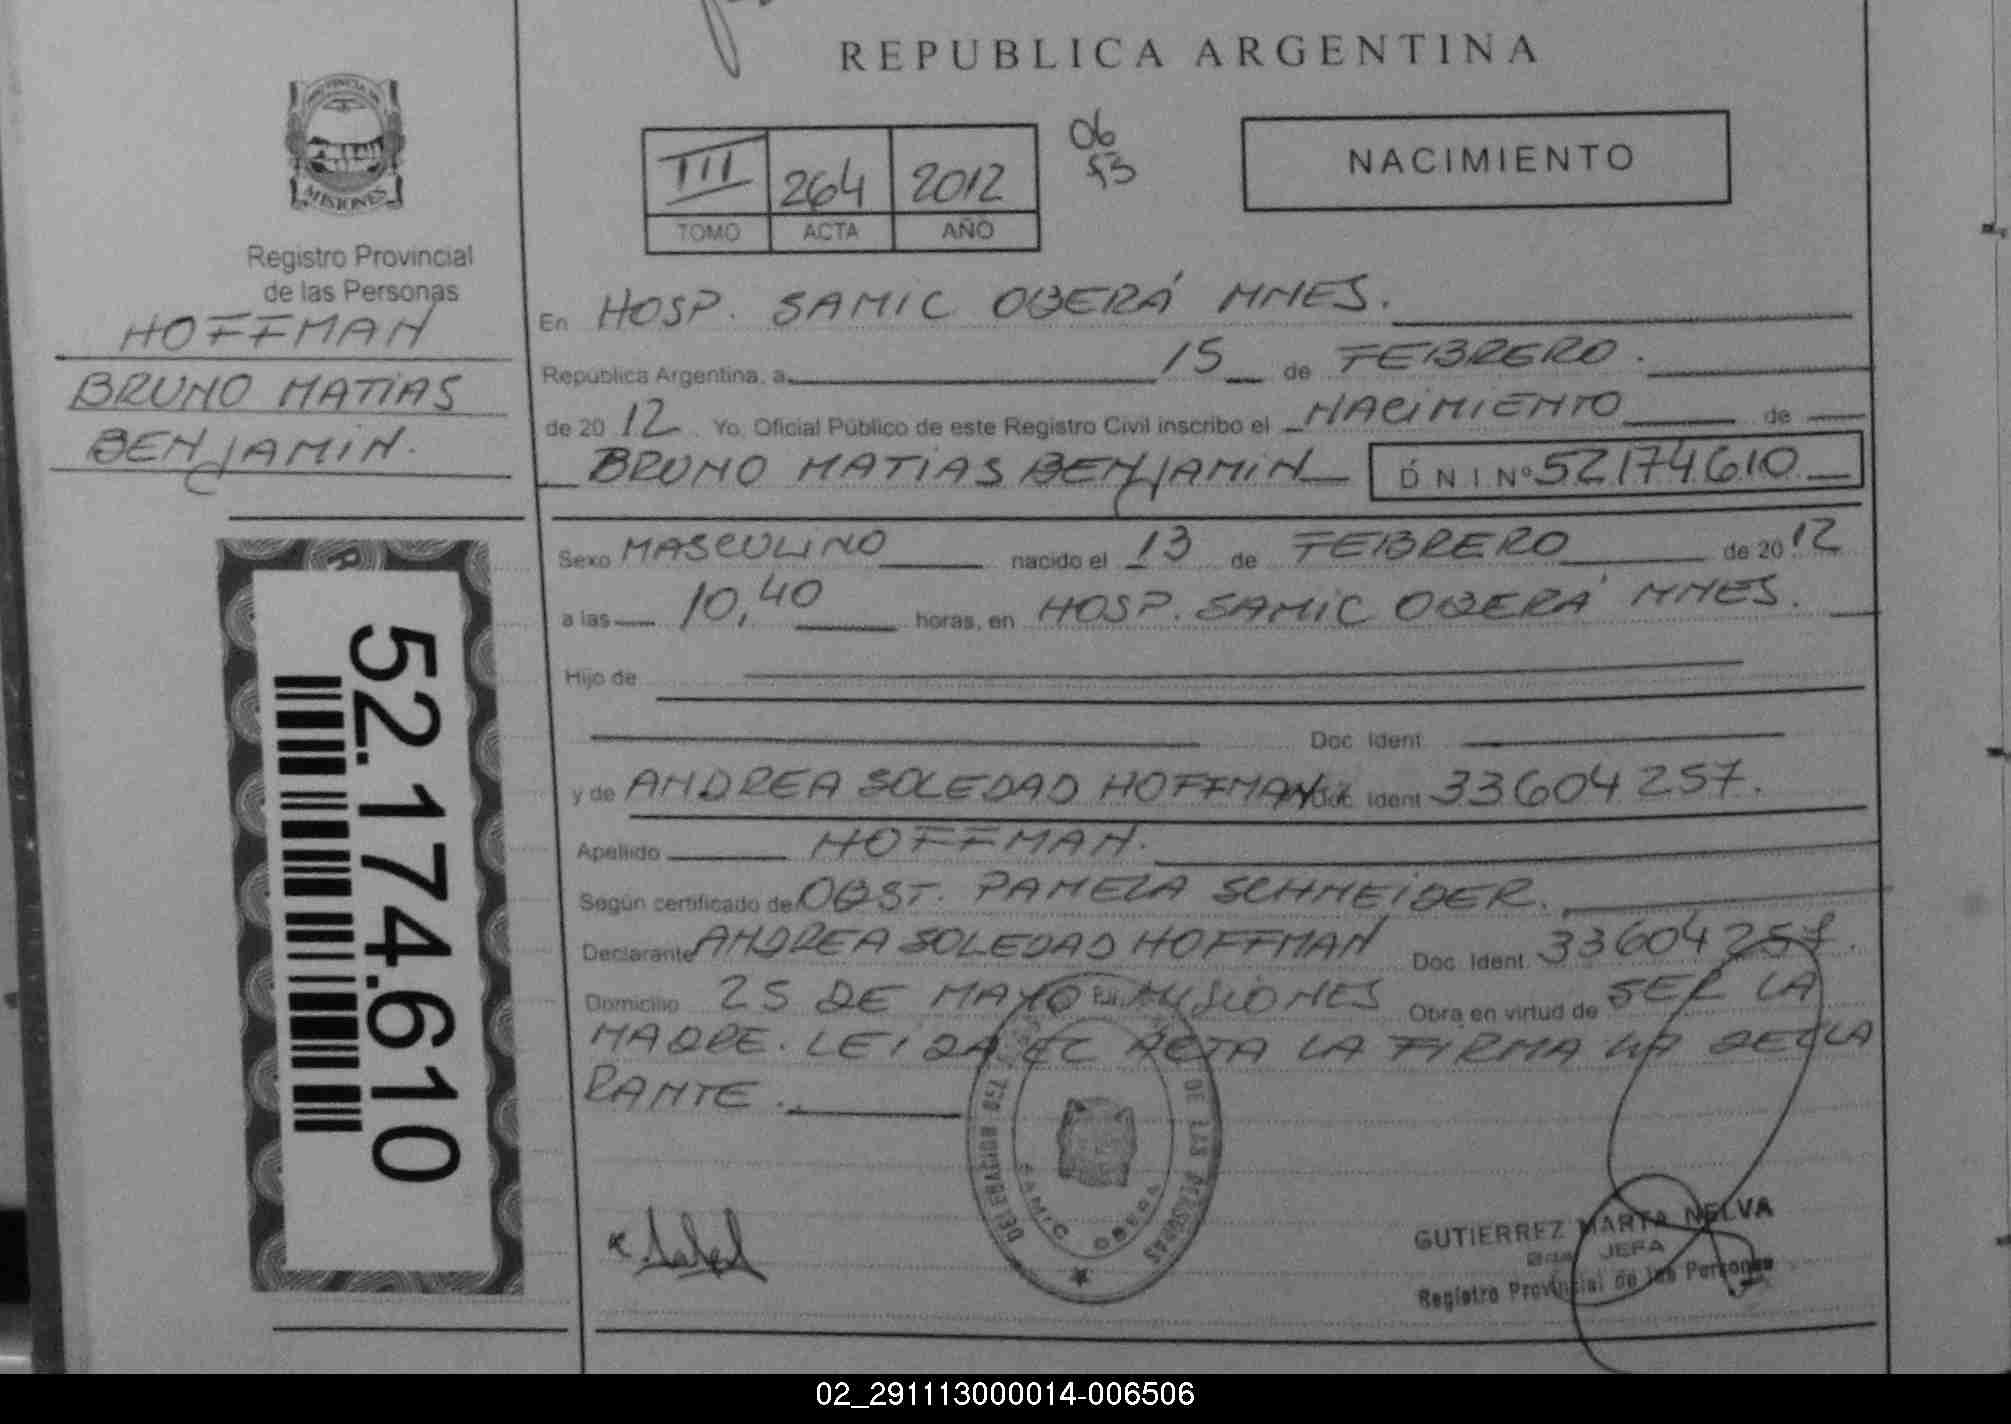 REPUBLICA ARGENTINA
PROVINCIA DE
MISIONES
Registro Provincial
de las Personas
HOFFMAN
BRUNO MATIAS
BENJAMIN.
52.174.610
III 264 2012
TOMO ACTA AÑO
06
f3
NACIMIENTO
En HOSP. SAMIC OBERÁ MNES.
República Argentina, a 15 de FEBRERO.
de 2012 Yo, Oficial Público de este Registro Civil inscribo el NACIMIENTO de
BRUNO MATIAS BENJAMIN D N I Nº 52174610
Sexo MASCULINO nacido el 13 de FEBRERO de 2012
a las 10,40 horas, en HOSP. SAMIC OBERÁ MNES.
Hijo de
Doc. Ident.
y de ANDREA SOLEDAD HOFFMAN Doc. Ident. 33604257.
Apellido HOFFMAN.
Según certificado de OBST. PAMELA SCHNEIDER.
Declarante ANDREA SOLEDAD HOFFMAN Doc. Ident. 33604257.
Domicilio 25 DE MAYO MISIONES Obra en virtud de SER LA
MADRE. LEIDA EL ACTA LA FIRMA LA DECLA
RANTE.
DE LAS PERSONAS
SAMIC OBERA
GUTIERREZ MARTA NELVA
JEFA
Registro Provincial de las Personas
02_291113000014-006506